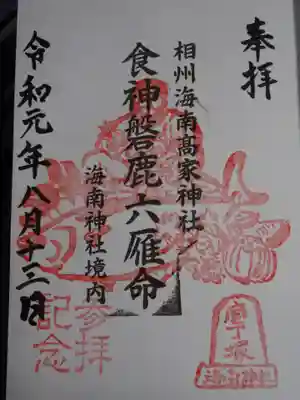 奉拝
相州海南高家神社
食神磐鹿六雁命
海南神社境内
令和元年八月十三日
参拝
記念
包丁塚
海南神社